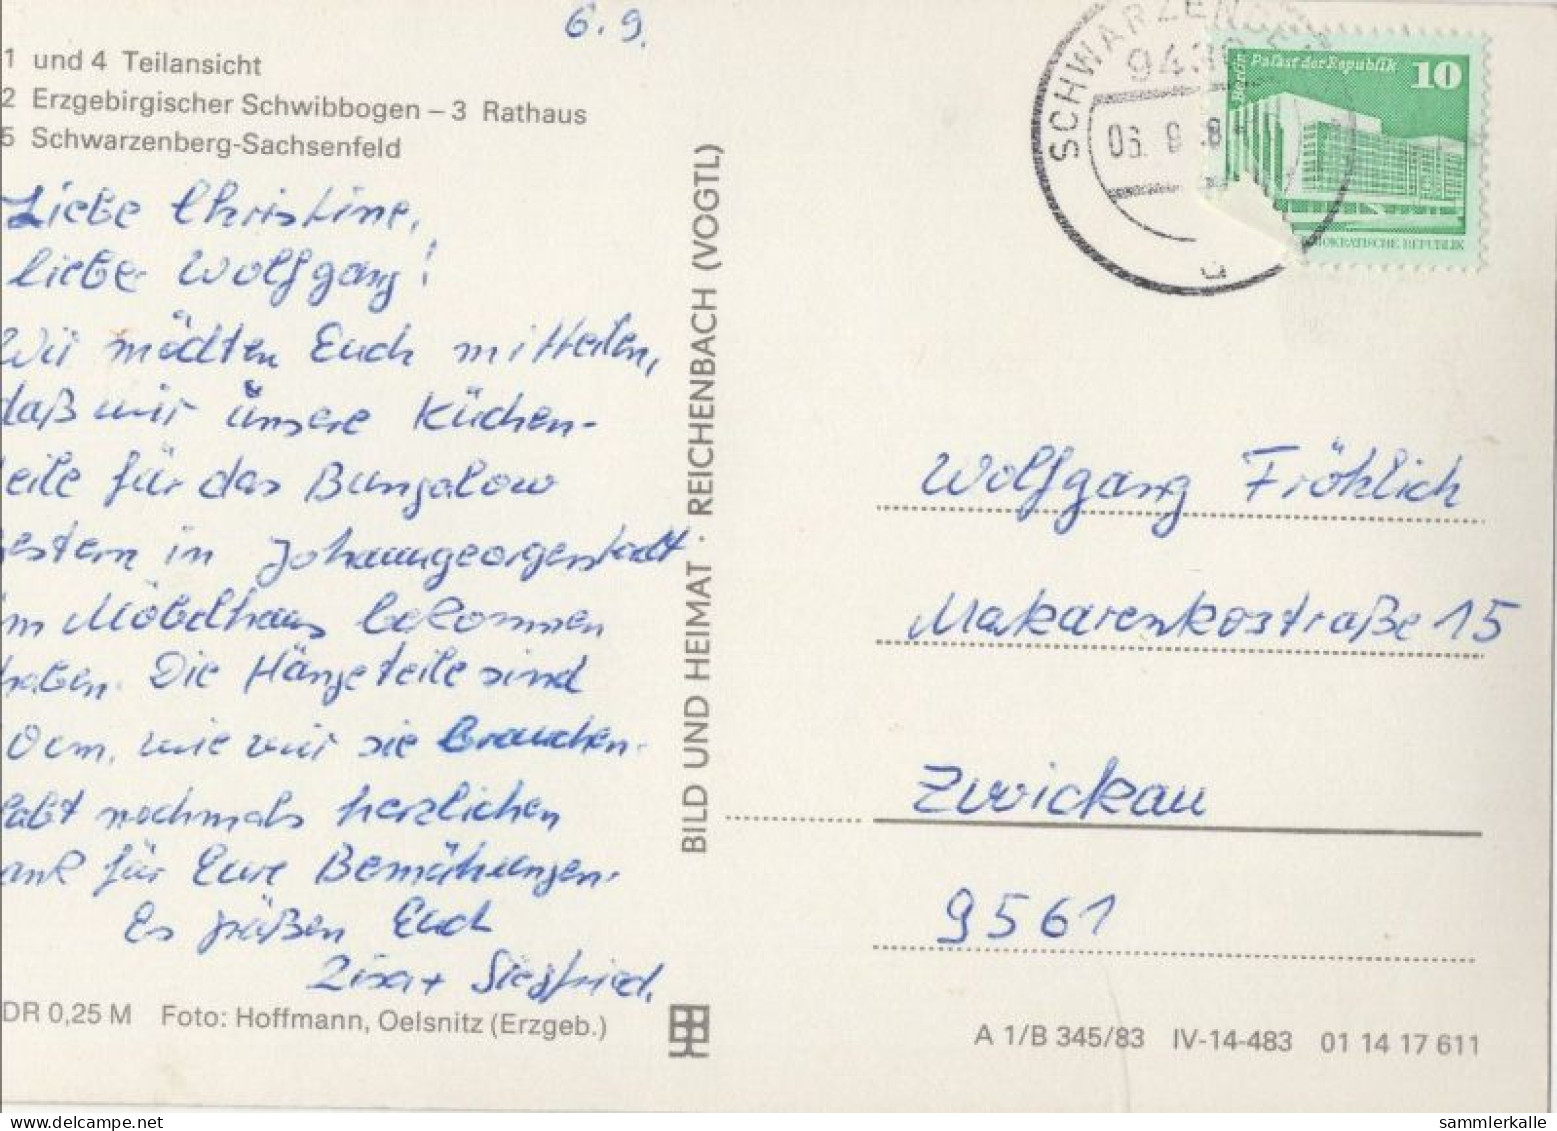 6.9.
1 und 4 Teilansicht
2 Erzgebirgischer Schwibbogen – 3 Rathaus
5 Schwarzenberg-Sachsenfeld
Liebe Christine,
liebe Wolfgang!
Wir möchten Euch mitteilen,
daß wir unsere Küchen-
teile für das Bungalow
gestern in Johanngeorgenstadt
im Möbelhaus bekommen
haben. Die Hängeteile sind
0cm, wie wir sie brauchen.
Habt nochmals herzlichen
Dank für Eure Bemühungen.
Es grüßen Euch
Lisa + Siegfried.
DR 0,25 M Foto: Hoffmann, Oelsnitz (Erzgeb.)
BILD UND HEIMAT · REICHENBACH (VOGTL)
SCHWARZENBERG
943
06. 9. 8
a
Berlin
Palast der Republik
10
MOKRATISCHE REPUBLIK
Wolfgang Fröhlich
Makarenkostraße 15
Zwickau
9561
A 1/B 345/83 IV-14-483 01 14 17 611
sammlerkalle